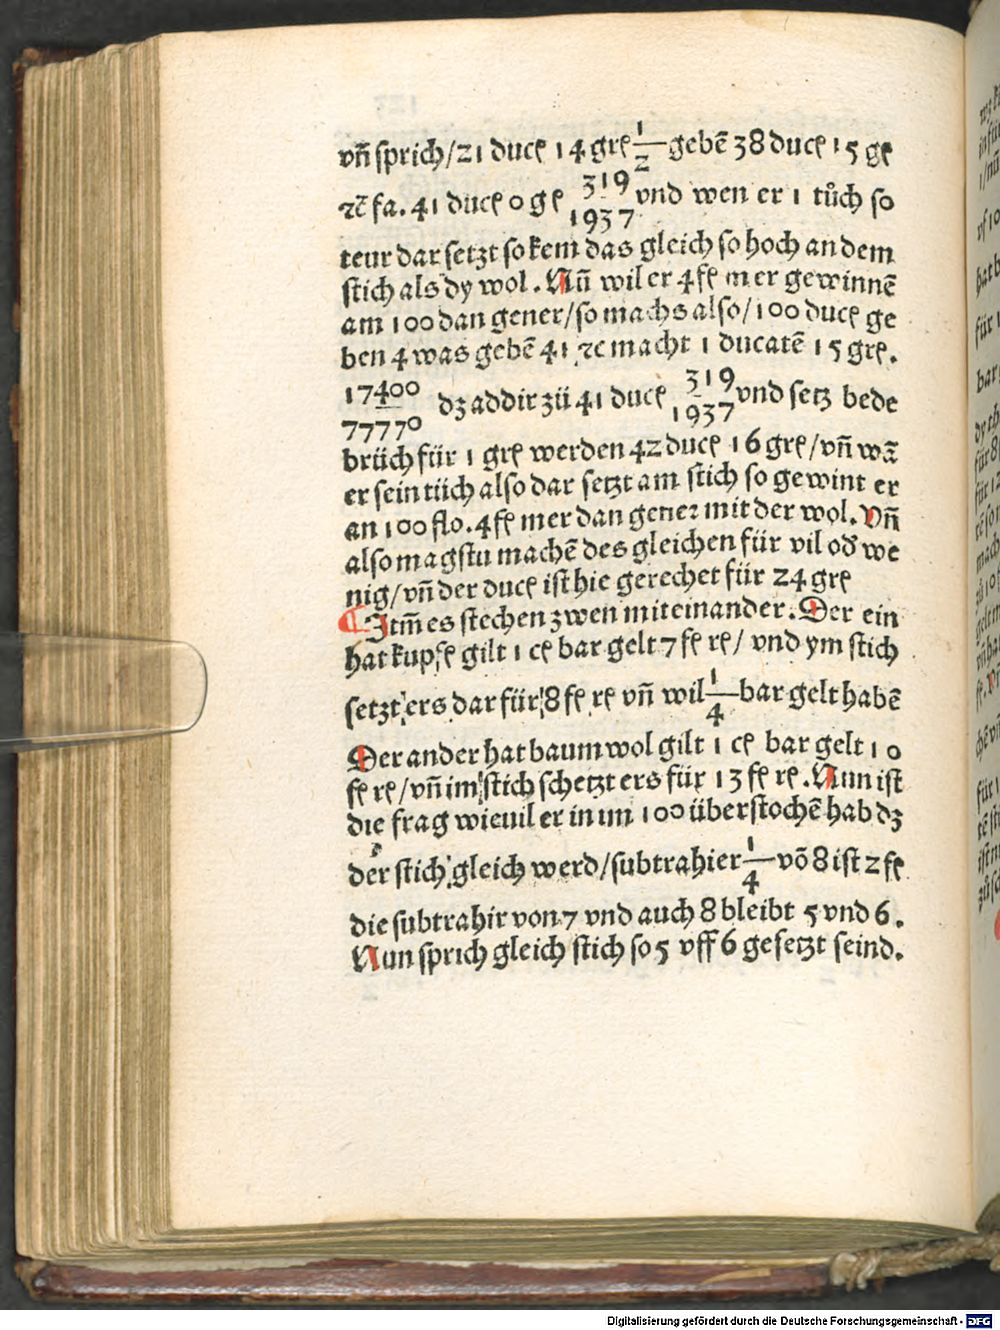 vñ sprich/21 ducꝭ 14 grꝭ 1/2 gebē 38 ducꝭ 15 gꝭ
ꝛc̄ fa. 41 ducꝭ 0 gꝭ 319/1937 vnd wen er 1 tůch so
teur dar setzt so kem das gleich so hoch an dem
stich als dy wol. Nũ wil er 4 fꝭ mer gewinnē
am 100 dan gener/so machs also/100 ducꝭ ge
ben 4 was gebē 41 ꝛc macht 1 ducatē 15 grꝭ.
17400/77770 dz addir zü 41 ducꝭ 319/1937 vnd setz bede
brüch für 1 grꝭ werden 42 ducꝭ 16 grꝭ/vñ wā
er sein tüch also dar setzt am stich so gewint er
an 100 flo. 4 fꝭ mer dan gener mit der wol. Vñ
also magstu machē des gleichen für vil od̄ we
nig/vñ der ducꝭ ist hie gerechet für 24 grꝭ
¶ Itm̄ es stechen zwen miteinander. Der ein
hat kupfꝭ gilt 1 cꝭ bar gelt 7 fꝭ rꝭ/ vnd ym stich
setzt ers dar für 8 fꝭ rꝭ vñ wil 1/4 bar gelt habē
Der ander hat baumwol gilt 1 cꝭ bar gelt 10
fꝭ rꝭ/vñ im stich schetzt ers für 13 fꝭ rꝭ. Nun ist
die frag wieuil er in im 100 überstochē hab dz
der stich gleich werd/subtrahier 1/4 vō 8 ist 2 fꝭ
die subtrahir von 7 vnd auch 8 bleibt 5 vnd 6.
Nun sprich gleich stich so 5 vff 6 gesetzt seind.
Digitalisierung gefördert durch die Deutsche Forschungsgemeinschaft - DFG